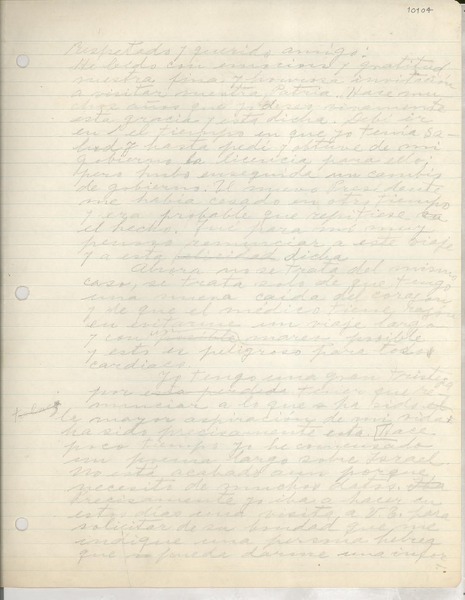 10104
Respetado y querido amigo:
He leído con emoción y gratitud
vuestra fina y honrosa invitación
a visitar vuestra Patria. Hace mu-
chos años que yo deseo vivamente
esta gracia y esta dicha. Debí ir
en el tiempo en que yo tenía sa-
lud y hasta pedí y obtuve de mi
Gobierno la licencia para ello;
pero hubo enseguida un cambio
de gobierno. El nuevo Presidente
me había cesado en otro tiempo
y era probable que repitiese
el hecho. Fue para mí muy
penoso renunciar a este viaje
y a esta felicidad dicha.
Ahora no se trata del mismo
caso, se trata solo de que tengo
una nueva caída del corazón
y de que el médico tiene razón
en evitarme un viaje largo
y con mareo posible
y esto es peligroso para todo
cardíaco.
Yo tengo una gran tristeza
por tener que re-
nunciar a lo que
la mayor aspiración de mi vida
ha sido precisamente esta. Hace
poco tiempo yo he comenzado
un poema largo sobre Israel.
No está acabado aún porque
necesito de muchos datos.
Precisamente yo iba a hacer en
estos días una visita a U.S. para
solicitar de su bondad que me
indique una persona hebrea
que pueda darme una infor-